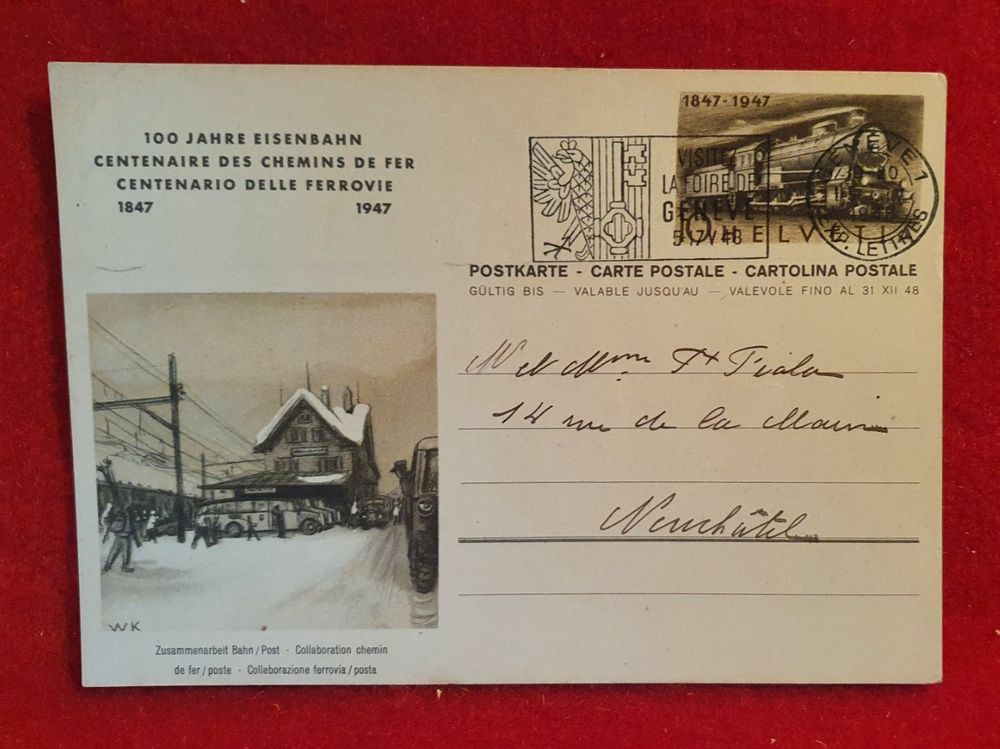 100 JAHRE EISENBAHN
CENTENAIRE DES CHEMINS DE FER
CENTENARIO DELLE FERROVIE
1847 1947
1847-1947
VISITEZ
LA FOIRE DE
GENÈVE
5-17 V 48
HELVETIA
GENÈVE 1
EXP. LETTRES
POSTKARTE - CARTE POSTALE - CARTOLINA POSTALE
GÜLTIG BIS — VALABLE JUSQU'AU — VALEVOLE FINO AL 31 XII 48
M et Mme
14 rue de la
Neuchâtel
WK
Zusammenarbeit Bahn / Post - Collaboration chemin
de fer / poste - Collaborazione ferrovia / posta